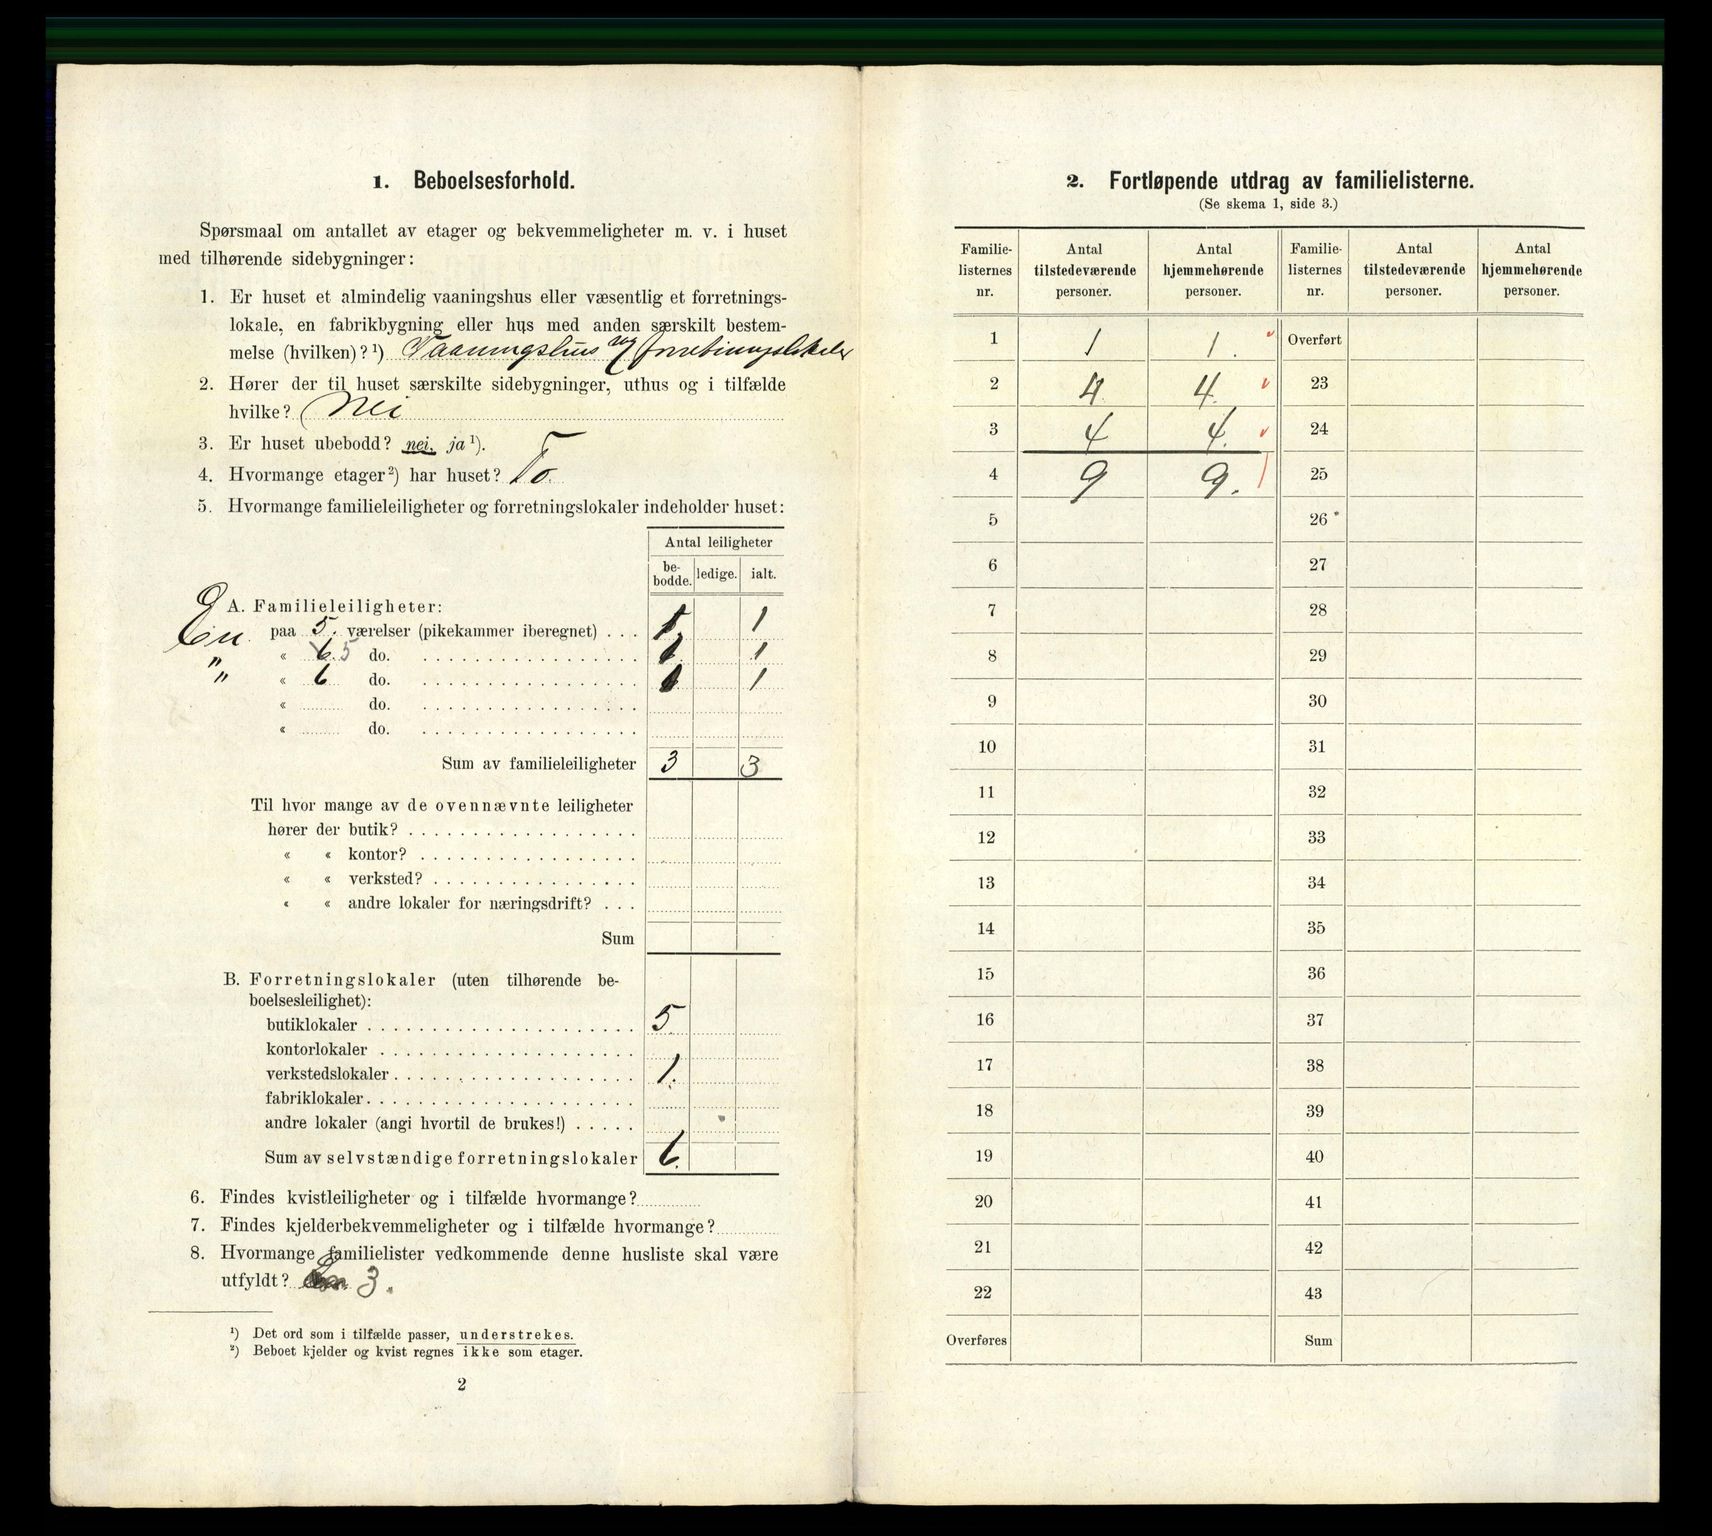 1. Beboelsesforhold.
Spørsmaal om antallet av etager og bekvemmeligheter m. v. i huset
med tilhørende sidebygninger:
1. Er huset et almindelig vaaningshus eller væsentlig et forretnings-
lokale, en fabrikbygning eller hus med anden særskilt bestem-
melse (hvilken)? ¹) Vaaningshus og forretningslokaler
2. Hører der til huset særskilte sidebygninger, uthus og i tilfælde
hvilke? Nei
3. Er huset ubebodd? nei, ja ¹).
4. Hvormange etager ²) har huset? To.
5. Hvormange familieleiligheter og forretningslokaler indeholder huset:
Antal leiligheter
be-
bodde. ledige. ialt.
A. Familieleiligheter:
En paa 5. værelser (pikekammer iberegnet) . . . 1 1
" « 6. 5 do. 1 1
" « 6 do. 1 1
« do.
« do.
Sum av familieleiligheter 3 3
Til hvor mange av de ovennævnte leiligheter
hører der butik?
« « kontor?
« « verksted?
« « andre lokaler for næringsdrift? . . .
Sum
B. Forretningslokaler (uten tilhørende be-
boelsesleilighet):
butiklokaler 5
kontorlokaler
verkstedslokaler 1.
fabriklokaler
andre lokaler (angi hvortil de brukes!) . . . . .
Sum av selvstændige forretningslokaler 6.
6. Findes kvistleiligheter og i tilfælde hvormange?
7. Findes kjelderbekvemmeligheter og i tilfælde hvormange?
8. Hvormange familielister vedkommende denne husliste skal være
utfyldt? 3.
¹) Det ord som i tilfælde passer, understrekes.
²) Beboet kjelder og kvist regnes ikke som etager.
2
2. Fortløpende utdrag av familielisterne.
(Se skema 1, side 3.)
Familie-listernes nr. Antal tilstedeværende personer. Antal hjemmehørende personer. Familie-listernes nr. Antal tilstedeværende personer. Antal hjemmehørende personer.
1 1 1. Overført
2 4 4. 23
3 4 4. 24
4 9 9. 25
5 26
6 27
7 28
8 29
9 30
10 31
11 32
12 33
13 34
14 35
15 36
16 37
17 38
18 39
19 40
20 41
21 42
22 43
Overføres Sum